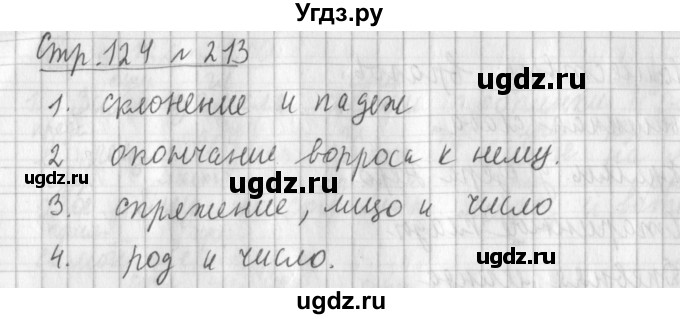 Угдз.ру
Стр. 124 № 213
ugdz.ru
1. склонение и падеж
ugdz.ru
2 окончание ворроса к нему.
ugdz.ru
ugdz.ru
3. спряжение, лицо и число
ugdz.ru
4. род и число.
ugdz.ru
ugdz.ru